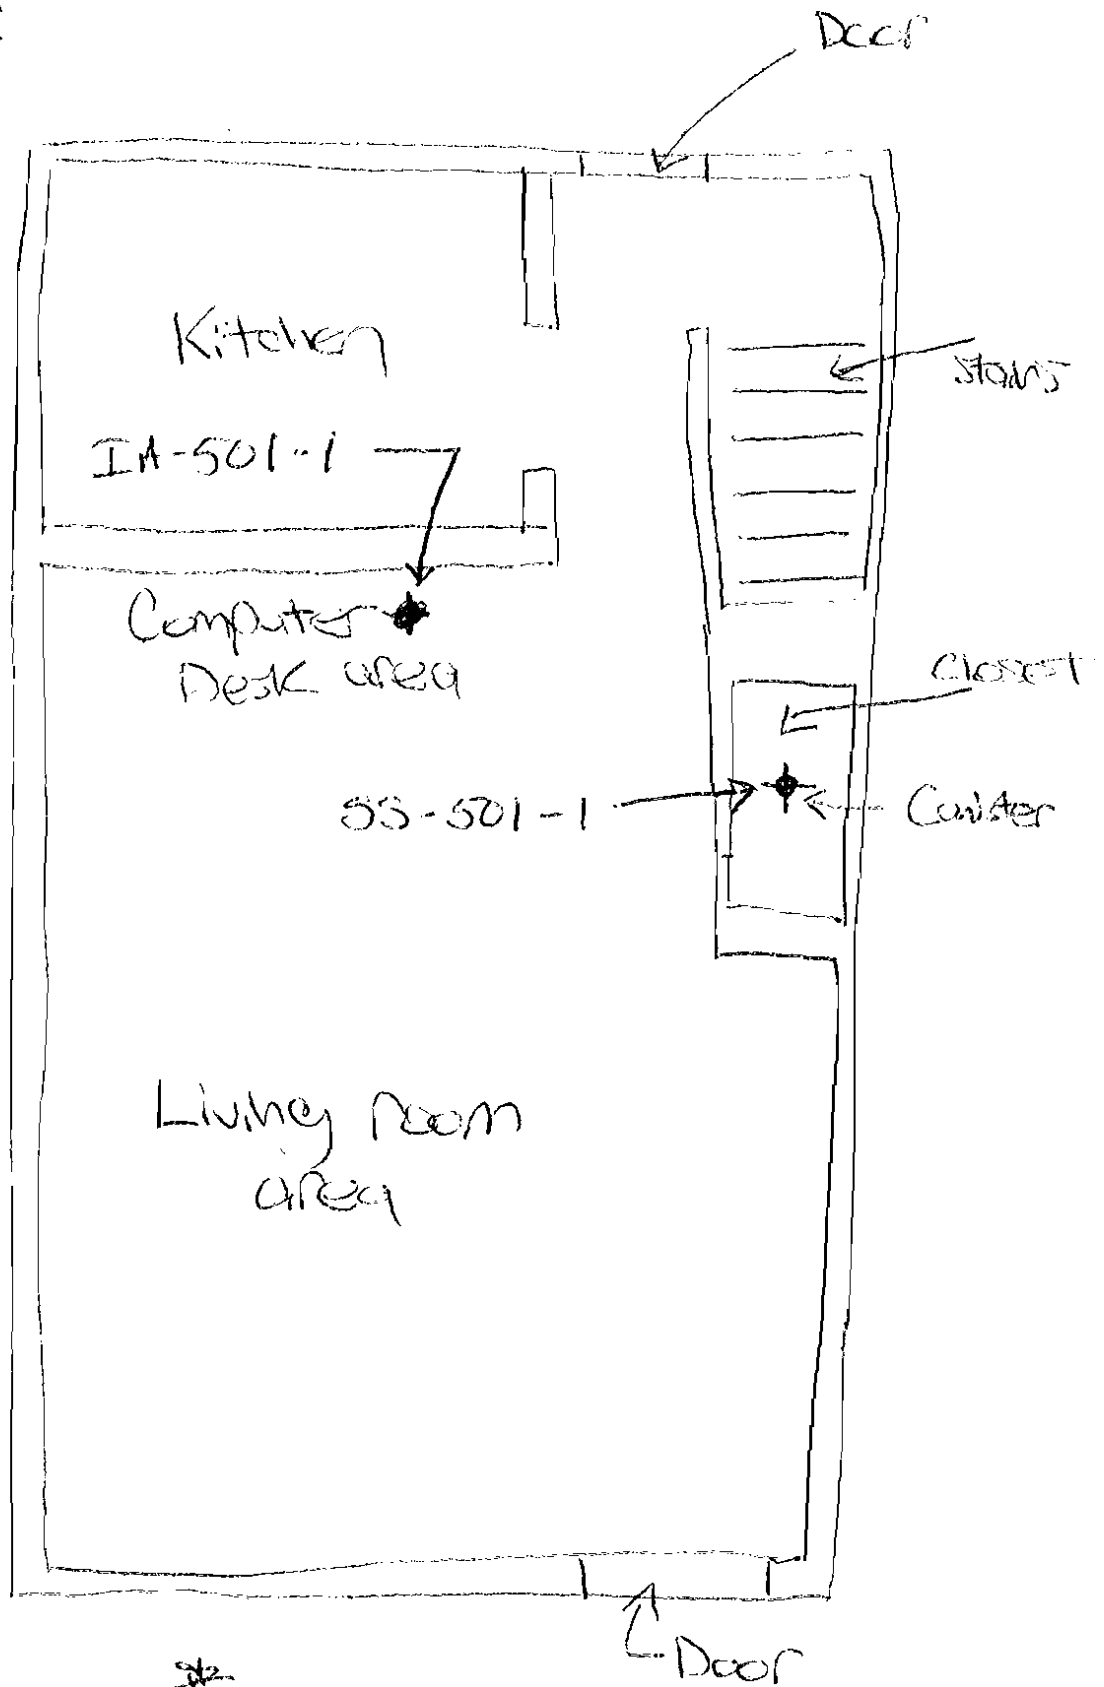 Door
Kitchen
Stairs
IA-501-1
Computer
Desk area
Closest
SS-501-1
Canister
Living room
area
Door